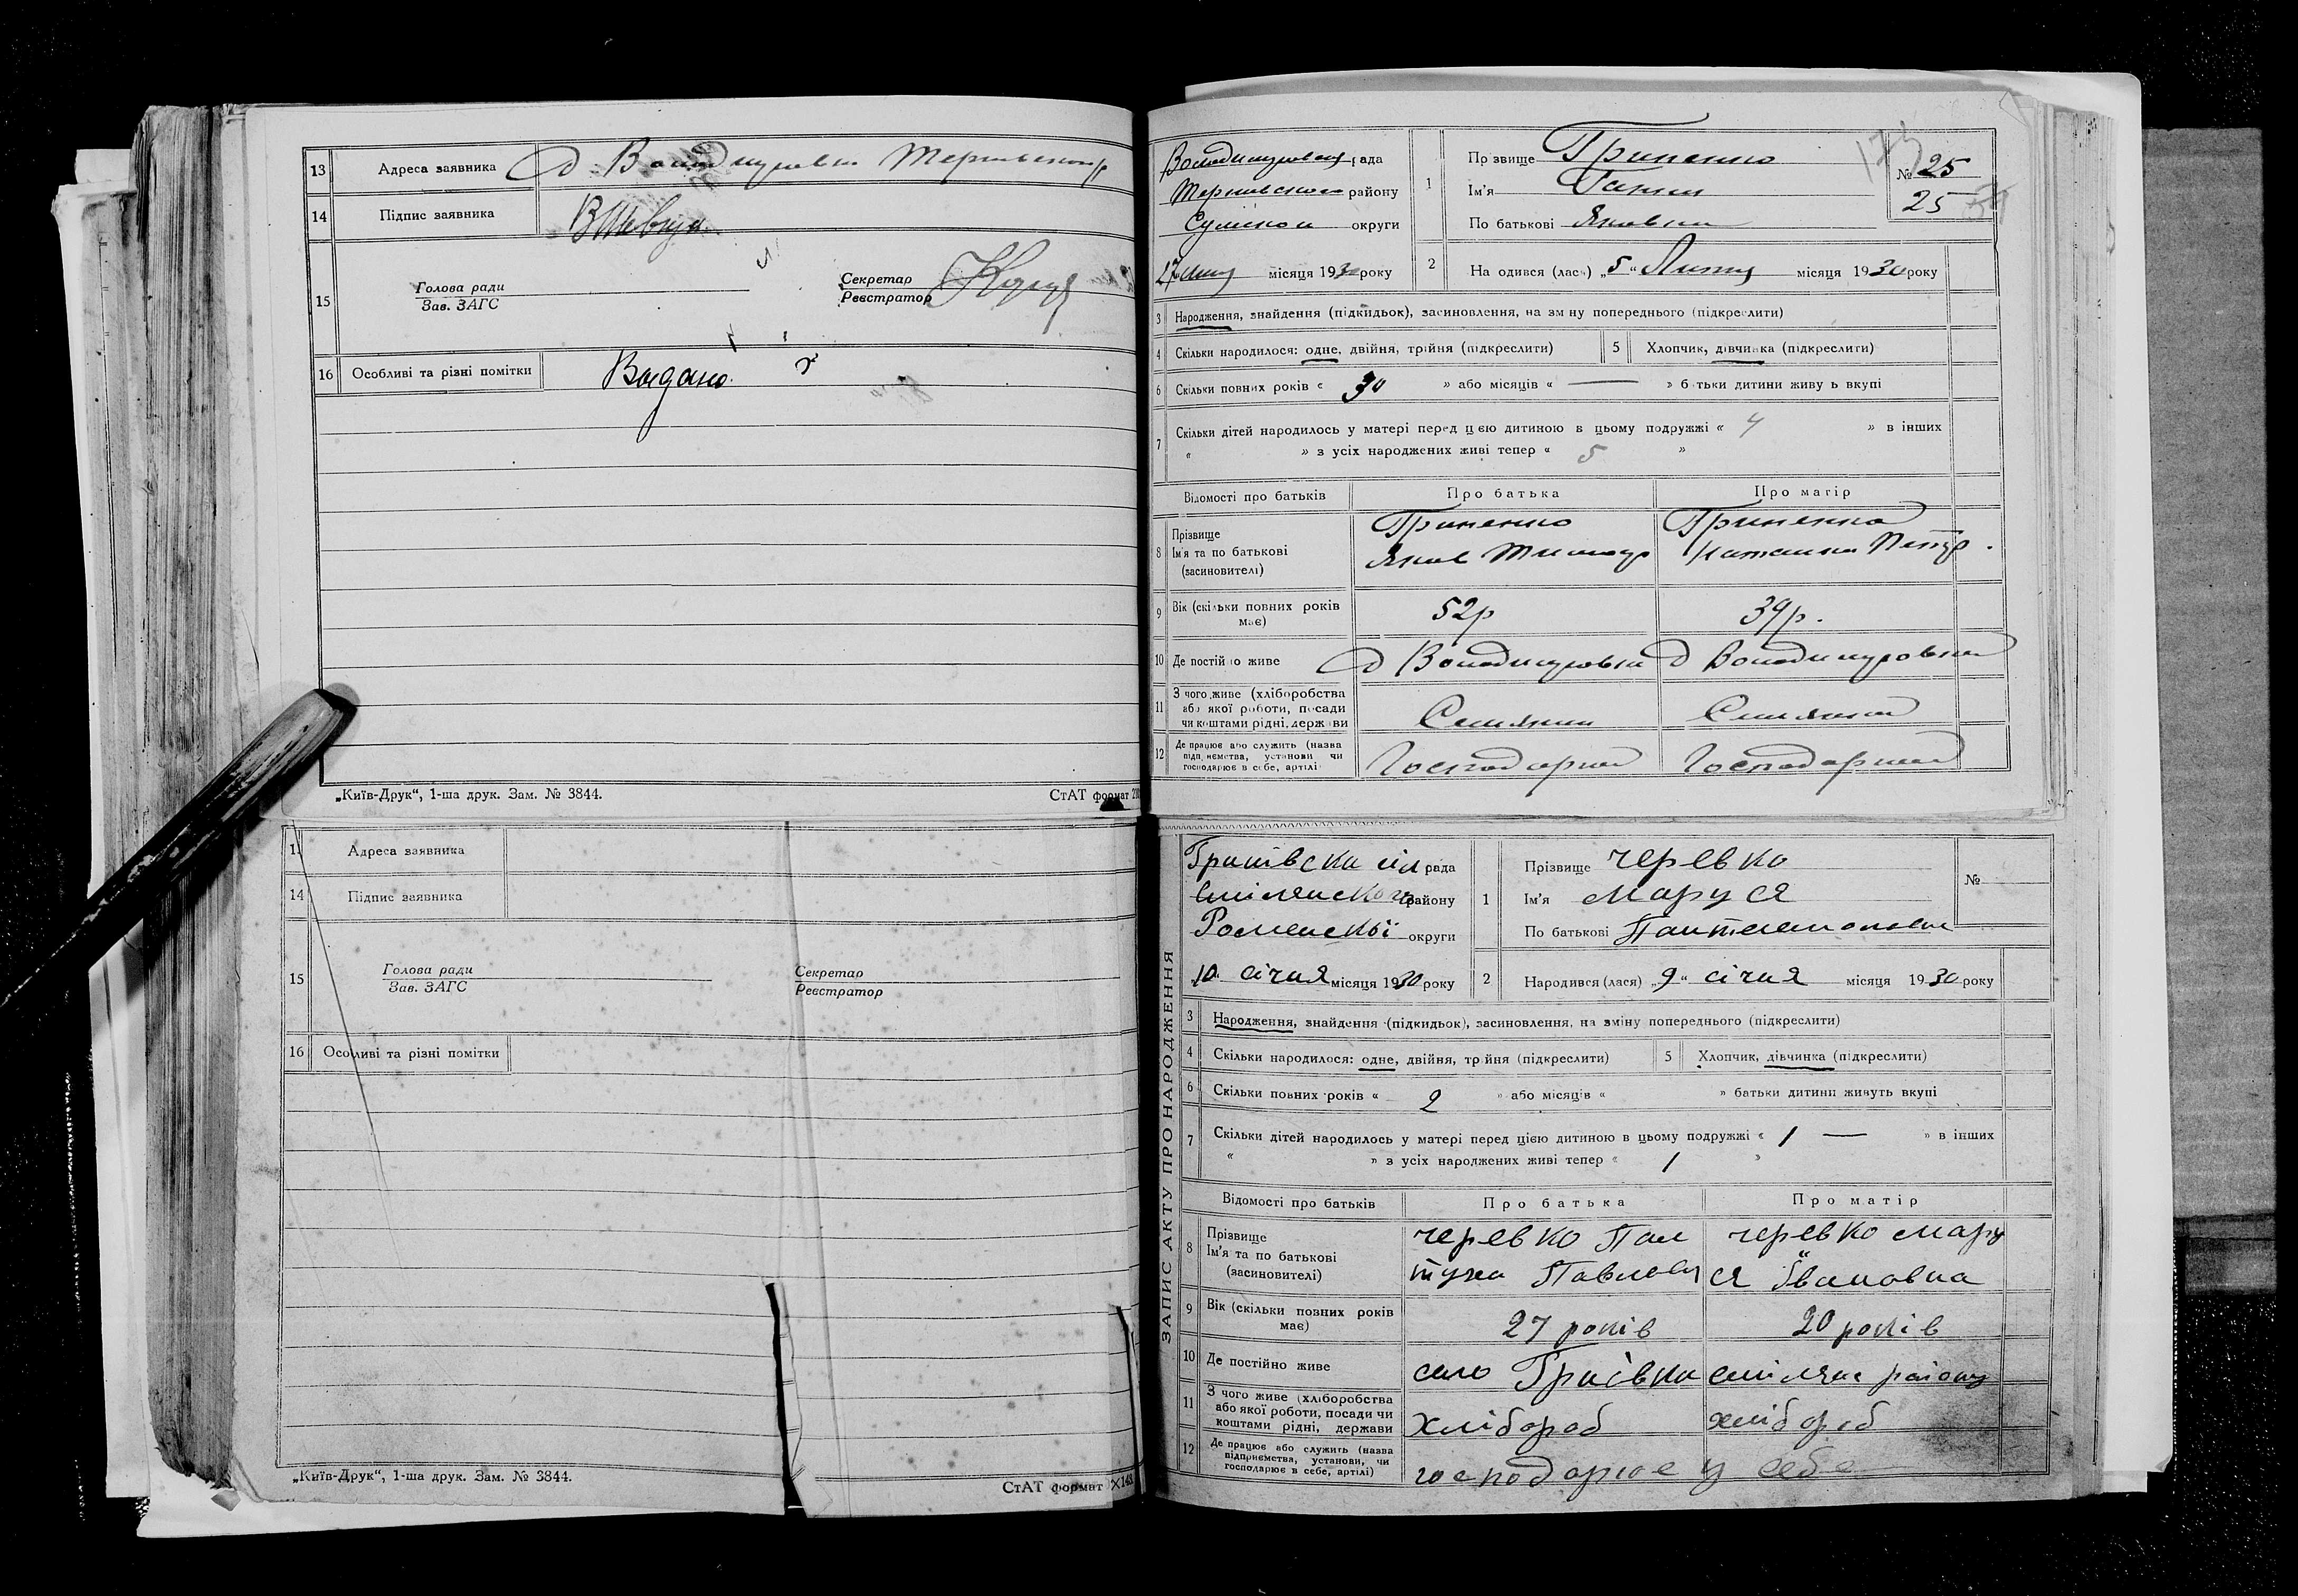 13 Адреса заявника д. Володимуровка
14 Підпис заявника ВШевчук
15 Голова ради
Зав. ЗАГС
Секретар
Реєстратор
16 Особливі та різні помітки Видано.
„Київ-Друк“, 1-ша друк. Зам. № 3844.
СтАТ формат
рада
району
Сумської округи
місяця 1930 року
1 Прізвище Гриненко
Ім'я Ганна
По батькові Яковна
№ 25
25
2 Народився (лася) „5“ місяця 1930 року
3 Народження, знайдення (підкидьок), засиновлення, на зміну попереднього (підкреслити)
4 Скільки народилося: одне, двійня, трійня (підкреслити) 5 Хлопчик, дівчинка (підкреслити)
6 Скільки повних років « » або місяців « — » батьки дитини живуть вкупі
7 Скільки дітей народилось у матері перед цією дитиною в цьому подружжі « 4 » в інших
« » з усіх народжених живі тепер « 5 »
Відомості про батьків Про батька Про матір
8 Прізвище
Ім'я та по батькові
(засиновителі)
Гриненко
Яков
Гриненко
9 Вік (скільки повних років має) 52р 39р.
10 Де постійно живе д Володимуровка д Володимуровка
11 З чого живе (хліборобства
або якої роботи, посади
чи коштами рідні, держави
Селянин
Селянка
12 Де працює або служить (назва
підприємства, установи чи
господарює в себе, артілі)
13 Адреса заявника
14 Підпис заявника
15 Голова ради
Зав. ЗАГС
Секретар
Реєстратор
16 Особливі та різні помітки
„Київ-Друк“, 1-ша друк. Зам. № 3844.
СтАТ формат
ЗАПИС АКТУ ПРО НАРОДЖЕННЯ
рада
району
Роменської округи
10 січня місяця 1930 року
1 Прізвище Черевко
Ім'я Маруся
По батькові
№
2 Народився (лася) „9“ січня місяця 1930 року
3 Народження, знайдення (підкидьок), засиновлення, на зміну попереднього (підкреслити)
4 Скільки народилося: одне, двійня, трійня (підкреслити) 5 Хлопчик, дівчинка (підкреслити)
6 Скільки повних років « 2 » або місяців « » батьки дитини живуть вкупі
7 Скільки дітей народилось у матері перед цією дитиною в цьому подружжі « 1 — » в інших
« » з усіх народжених живі тепер « 1 »
Відомості про батьків Про батька Про матір
8 Прізвище
Ім'я та по батькові
(засиновителі)
черевко
черевко Мару
ся Івановна
9 Вік (скільки повних років має) 27 років 20 років
10 Де постійно живе село району
11 З чого живе (хліборобства
або якої роботи, посади чи
коштами рідні, держави
хлібороб
хлібороб
12 Де працює або служить (назва
підприємства, установи, чи
господарює в себе, артілі)
господарює у себе